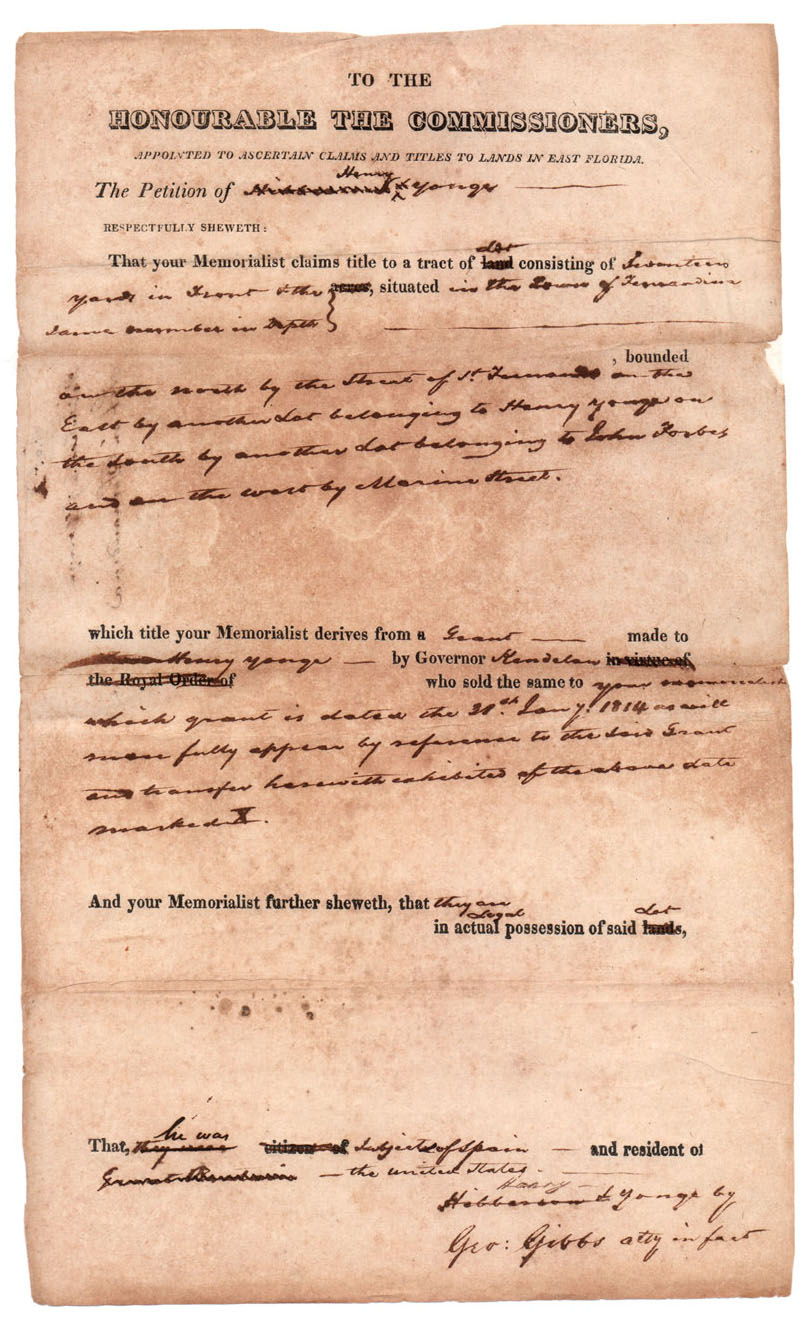 TO THE
HONOURABLE THE COMMISSIONERS,
APPOINTED TO ASCERTAIN CLAIMS AND TITLES TO LANDS IN EAST FLORIDA.
Henry
The Petition of Hibberson & Yonge
RESPECTFULLY SHEWETH:
Lot
That your Memorialist claims title to a tract of land consisting of Seventeen
yards in Front & the acres, situated in the Town of Fernandina
same number in Depth
, bounded
on the north by the Street of St. Fernando on the
East by another Lot belonging to Henry Yonge on
the South by another Lot belonging to John Forbes
and on the west by Marine Street.
which title your Memorialist derives from a Grant made to
Henry Yonge by Governor Kendelan in virtue of
the Royal Order of who sold the same to your memorialist
which grant is dated the 21st Jany. 1814 as will
more fully appear by reference to the said Grant
and transfer herewith exhibited of the above date
marked
And your Memorialist further sheweth, that they are
Legal Lot
in actual possession of said lands,
he was
That, they were citizen of Subjects of Spain and resident of
the united States.
Henry
Hibberson & Yonge by
Geo: Gibbs atty in fact